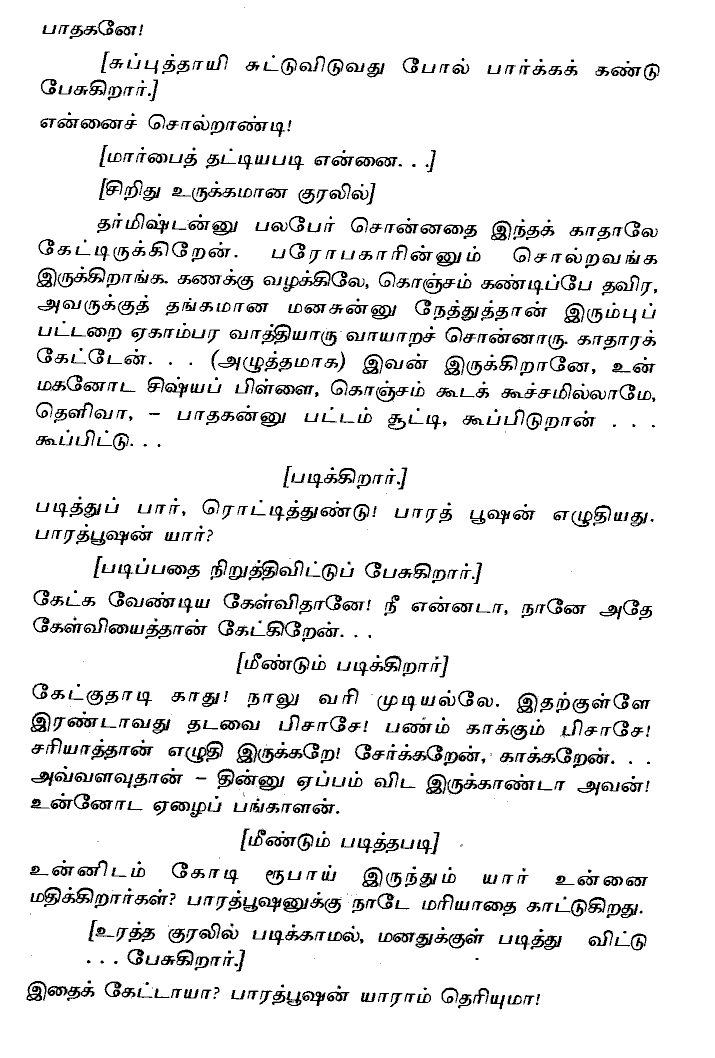 பாதகனே!
[சுப்புத்தாயி சுட்டுவிடுவது போல் பார்க்கக் கண்டு
பேசுகிறார்.]
என்னைச் சொல்றாண்டி!
[மார்பைத் தட்டியபடி என்னை. . .]
[சிறிது உருக்கமான குரலில்]
தர்மிஷ்டன்னு பலபேர் சொன்னதை இந்தக் காதாலே
கேட்டிருக்கிறேன். பரோபகாரின்னும் சொல்றவங்க
இருக்கிறாங்க. கணக்கு வழக்கிலே, கொஞ்சம் கண்டிப்பே தவிர,
அவருக்குத் தங்கமான மனசுன்னு நேத்துத்தான் இரும்புப்
பட்டறை ஏகாம்பர வாத்தியாரு வாயாறச் சொன்னாரு. காதாரக்
கேட்டேன். . . (அழுத்தமாக) இவன் இருக்கிறானே, உன்
மகனோட சிஷ்யப் பிள்ளை, கொஞ்சம் கூடக் கூச்சமில்லாமே,
தெளிவா, – பாதகன்னு பட்டம் சூட்டி, கூப்பிடுறான் . . .
கூப்பிட்டு. . .
[படிக்கிறார்.]
படித்துப் பார், ரொட்டித்துண்டு! பாரத் பூஷன் எழுதியது.
பாரத்பூஷன் யார்?
[படிப்பதை நிறுத்திவிட்டுப் பேசுகிறார்.]
கேட்க வேண்டிய கேள்விதானே! நீ என்னடா, நானே அதே
கேள்வியைத்தான் கேட்கிறேன். . .
[மீண்டும் படிக்கிறார்]
கேட்குதாடி காது! நாலு வரி முடியல்லே. இதற்குள்ளே
இரண்டாவது தடவை பிசாசே! பணம் காக்கும் பிசாசே!
சரியாத்தான் எழுதி இருக்கறே! சேர்க்கறேன், காக்கறேன். . .
அவ்வளவுதான் – தின்னு ஏப்பம் விட இருக்காண்டா அவன்!
உன்னோட ஏழைப் பங்காளன்.
[மீண்டும் படித்தபடி]
உன்னிடம் கோடி ரூபாய் இருந்தும் யார் உன்னை
மதிக்கிறார்கள்? பாரத்பூஷனுக்கு நாடே மரியாதை காட்டுகிறது.
[உரத்த குரலில் படிக்காமல், மனதுக்குள் படித்து விட்டு
. . . பேசுகிறார்.]
இதைக் கேட்டாயா? பாரத்பூஷன் யாராம் தெரியுமா!